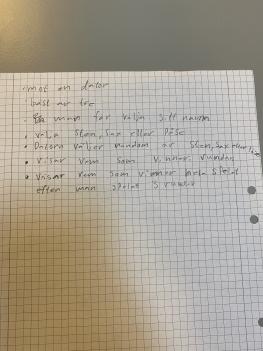 · mot en dator
· bäst av tre
· man får välja sitt namn
• välja Sten, Sax eller Påse
• Datorn väljer random av Sten, Sax eller
• Visar vem som vinner rundan
• Visar vem som vinner hela spelet
efter man spelat 3 rundor